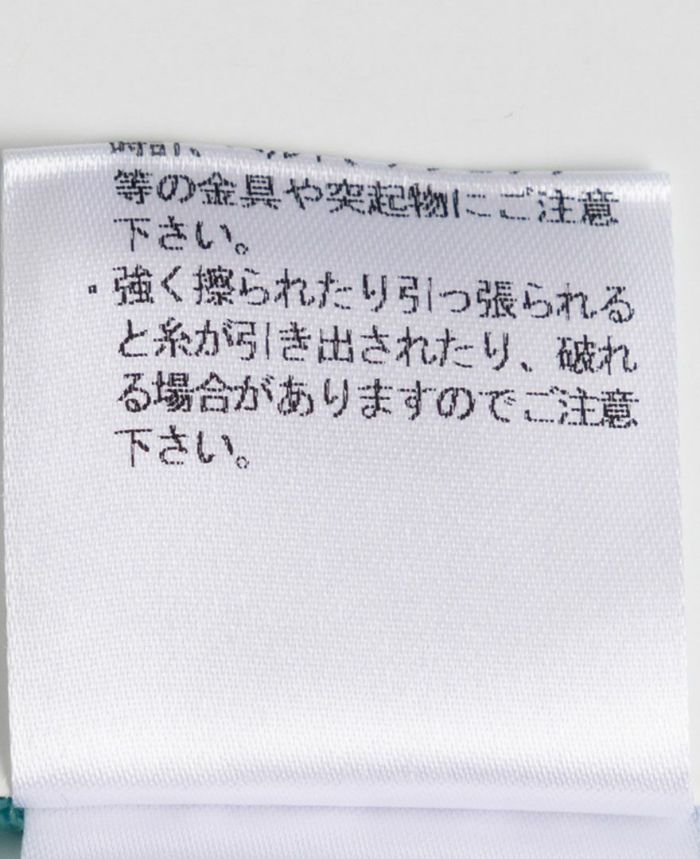 等の金具や突起物にご注意
下さい。
・強く擦られたり引っ張られる
と糸が引き出されたり、破れ
る場合がありますのでご注意
下さい。